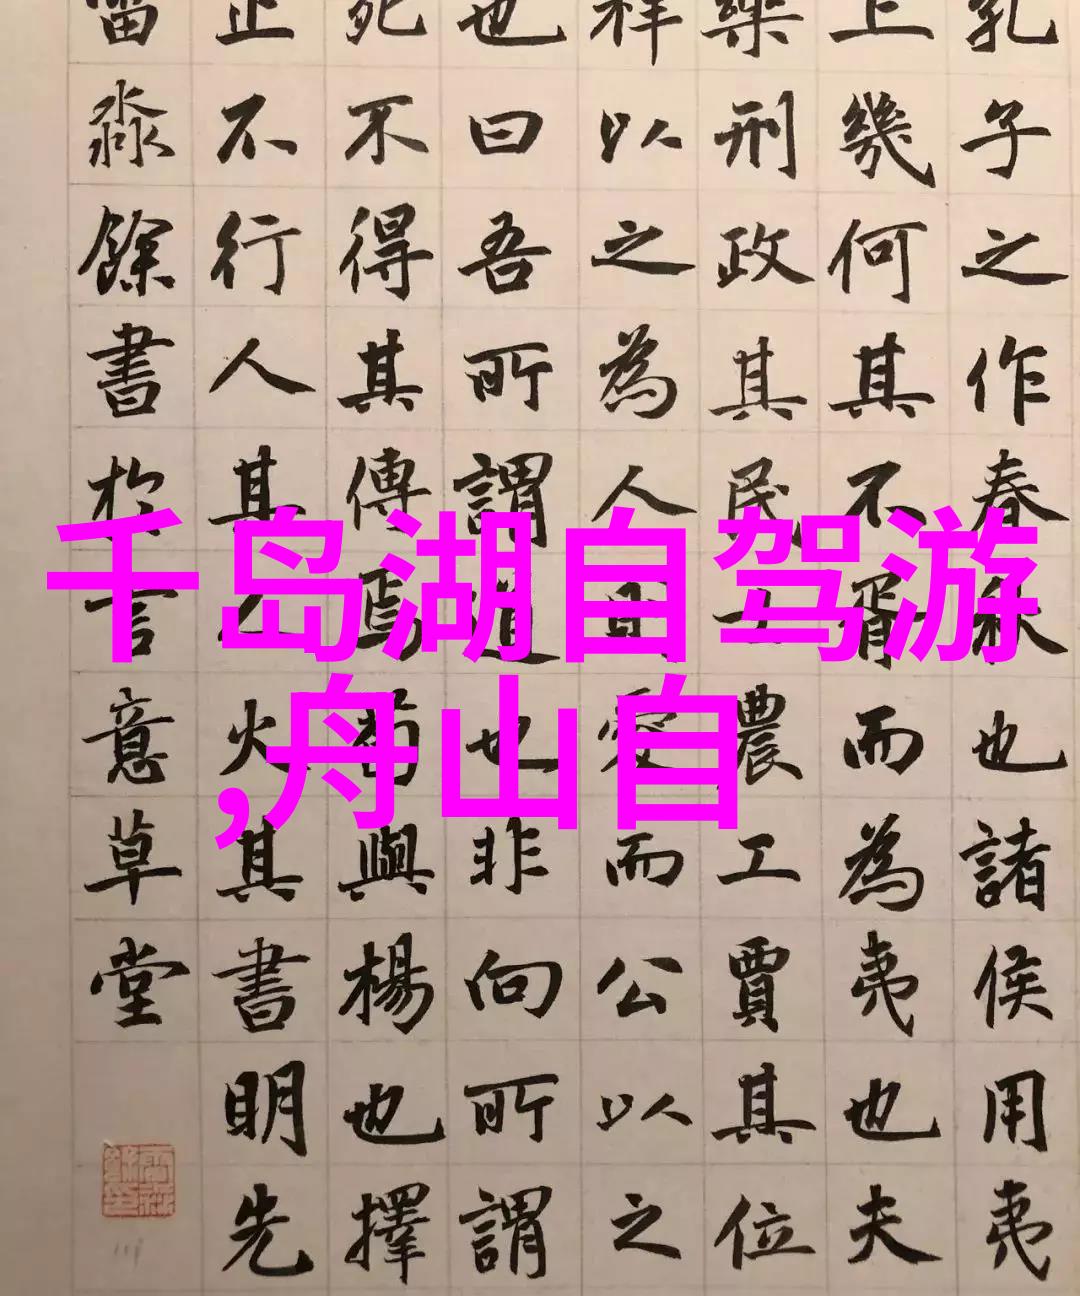 孔子之作春秋也諸侯用夷
上幾何其不胥而為夷也夫
樂刑政其民士農工賈其位
祥以之為人則愛而公以之
也曰吾所謂道也非向所謂
死不得其傳焉荀與楊也擇
止不行人其人火其書明先
淼餘書於言意草堂
千岛湖自驾游
,舟山自